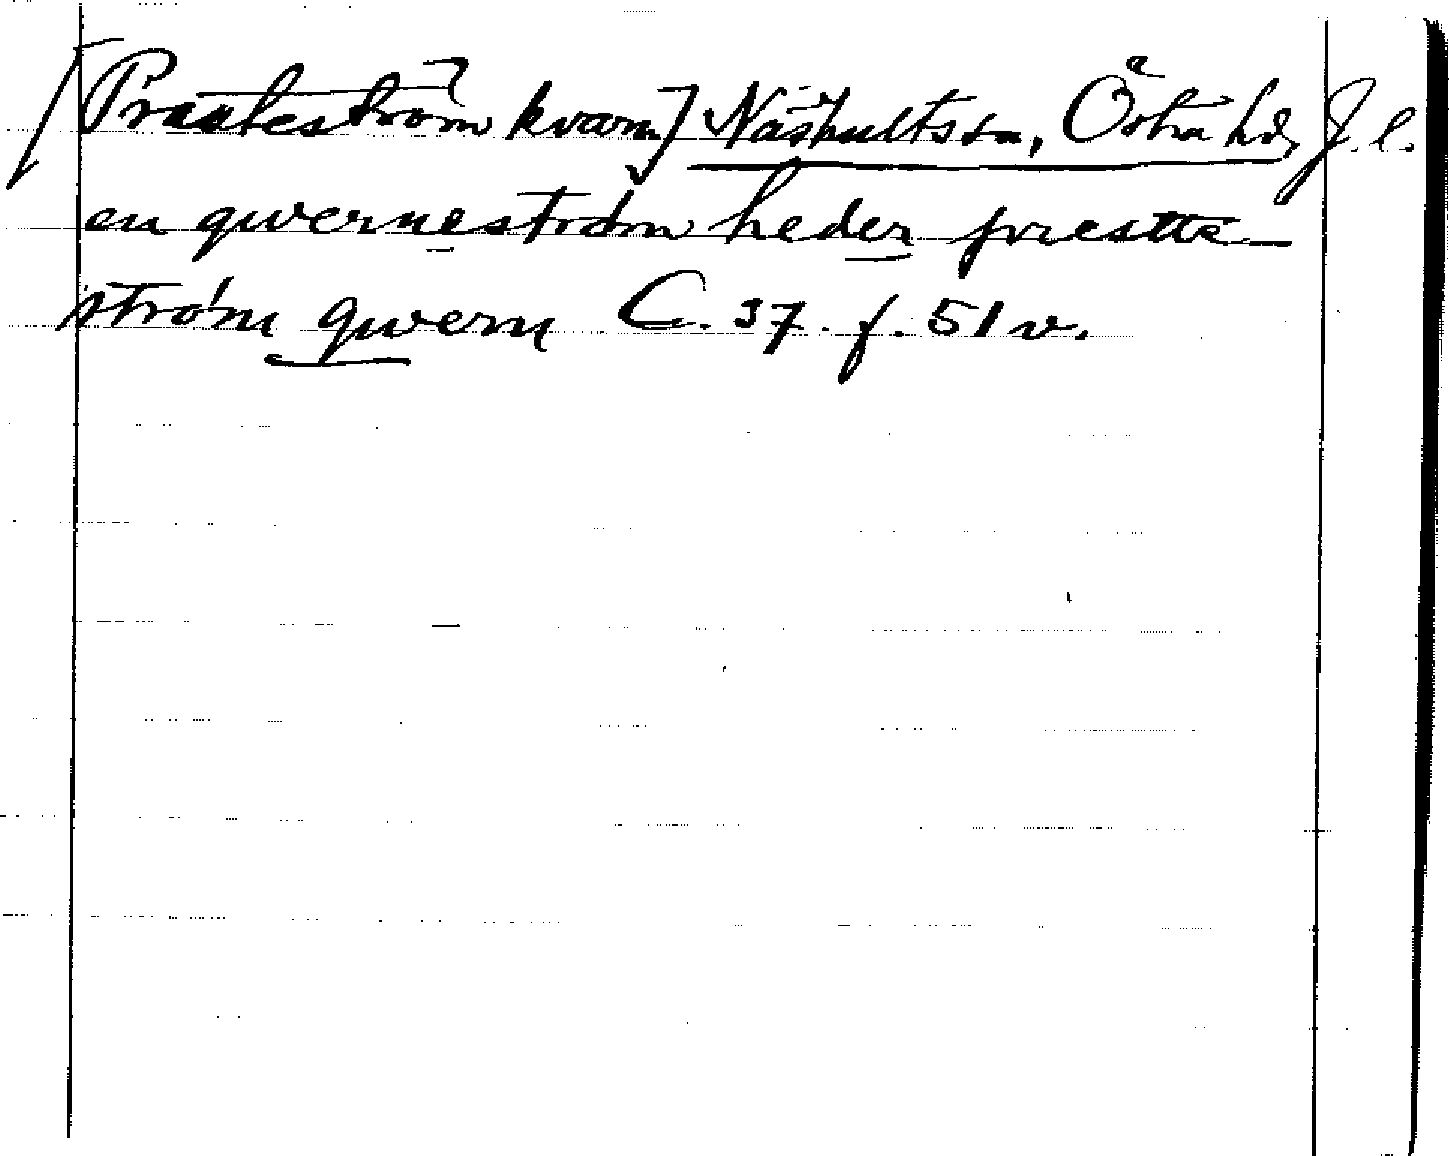 [Prästeström kvarn] Näshults sn, Östra hd, J. l.
en qwerneström heder prestte-
ström qwern C. 37. f. 51 v.